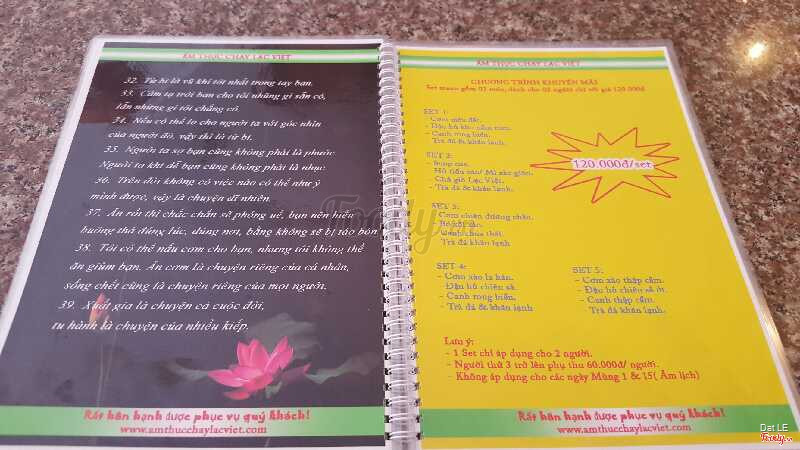 ẨM THỰC CHAY LẠC VIỆT
32. Từ bi là vũ khí tốt nhất trong tay bạn.
33. Cảm tạ trời ban cho tôi những gì sẵn có,
lẫn những gì tôi chẳng có.
34. Nếu có thể lo cho người ta với góc nhìn
của người đó, vậy thì là từ bi.
35. Người ta sợ bạn cũng không phải là phước
Người ta khi dể bạn cũng không phải là nhục
36. Trên đời không có việc nào có thể như ý
mình được, vậy là chuyện dĩ nhiên
37. Ăn rồi thì chắc chắn sẽ phóng uế, bạn nên hiến
đúng lúc, đúng nơi, bằng không sẽ bị táo bón
38. Tôi có thể nấu cơm cho bạn, nhưng tôi không thể
ăn giùm bạn. Ăn cơm là chuyện riêng của cá nhân,
sống chết cũng là chuyện riêng của mọi người.
39. Xuất gia là chuyện cả cuộc đời,
tu hành là chuyện của nhiều kiếp.
Rất hân hạnh được phục vụ quý khách!
www.amthucchaylacviet.com
ẨM THỰC CHAY LẠC VIỆT
CHƯƠNG TRÌNH KHUYẾN MÃI
Set menu gồm 03 món, dành cho 02 người chỉ với giá 120.000đ
SET 1:
- Đậu hũ kho nấm rơm.
- Canh rong biển.
- Trà đá & khăn lạnh.
120.000đ/set
SET 2:
- Hủ tiếu xào/ Mì xào giòn.
- Chả giò Lạc Việt.
- Trà đá & khăn lạnh.
SET 3:
- Cơm chiên dương châu.
Canh chua thái.
Trà đá & khăn lạnh
SET 4:
- Cơm xào la hán.
Đậu hũ chiên sả.
- Canh rong biển.
- Trà đá & khăn lạnh
SET 5:
- Cơm xào thập cẩm.
- Đậu hũ chiên sả ớt.
- Canh thập cẩm.
- Trà đá & khăn lạnh.
Lưu ý:
- 1 Set chỉ áp dụng cho 2 người.
- Người thứ 3 trở lên phụ thu 60.000đ/ người.
- Không áp dụng cho các ngày Mùng 1 & 15( Âm lịch)
Rất hân hạnh được phục vụ quý khách!
www.amthucchaylacviet.com
Foody
Dat LE
Foody.vn